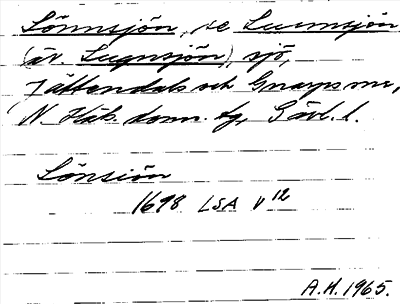 Lönnsjön, se Lunnsjön
(äv. Lugnsjön), sjö,
Jättendals och Gnarps snr,
N. Häls. doms. tg, Gävl. l.
Lönsiön
1698 LSA V 12
A.H. 1965.